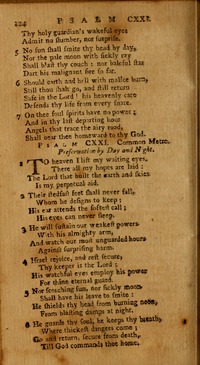 224 PSALM CXXI.
Thy holy guardian's wakeful eyes
Admit no slumber, nor surprise.
5 No sun shall smite thy head by day,
Nor the pale moon with sickly ray
Shall blast thy couch: nor baleful star
Dart his malignant fire so far.
6 Should earth and hell with malice burn,
Still thou shalt go, and still return
Safe in the Lord! his heavenly care
Defends thy life from every snare.
7 On thee foul spirits have no power;
And in thy last departing hour
Angels that trace the airy road,
Shall bear thee homeward to thy God.
PSALM CXXI. Common Metre.
Preservation by Day and Night.
1 TO heaven I lift my waiting eyes,
There all my hopes are laid:
The Lord that built the earth and skies
Is my perpetual aid.
2 Their stedfast feet shall never fall,
Whom he designs to keep;
His ear attends the softest call;
His eyes can never sleep.
3 He will sustain our weakest powers
With his almighty arm,
And watch our most unguarded hours
Against surprising harm.
4 Israel rejoice, and rest secure,
Thy keeper is the Lord;
His watchful eyes employ his power
For thine eternal guard.
5 Nor scorching sun, nor sickly moon
Shall have his leave to smite:
He shields thy head from burning noon,
From blasting damps at night.
6 He guards thy soul, he keeps thy breath,
Where thickest dangers come;
Go and return, secure from death,
Till God commands thee home.